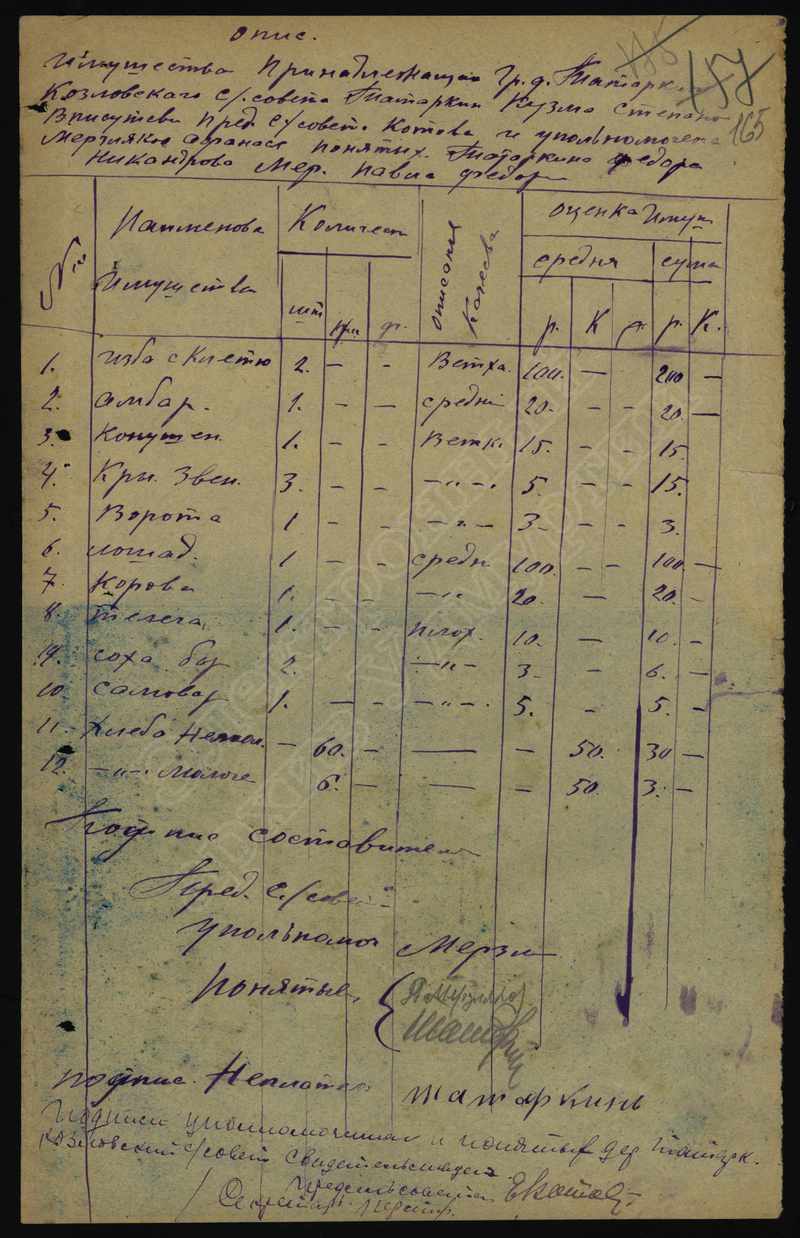 опис.
175
157
165
Имущества Принадлежащая Гр. д. Татарк
Козловского с/совета Татаркин Кузма Степано
В писутсви пред с/совета Котова и упольномочена
Мерзляков Афанася понятых Татаркина Федора
Никандрова Мер. Павла Федор
№
Наименова Имущества
Количест
описание Качества
оценка Имущ
средня сума
шт Пу. ф. р. К р. К.
1. изба с Клетю 2. — - Ветха. 100. — 200 —
2. амбар. 1. - — средни 20. - - 20. —
3. Конушен. 1. - - Ветх. 15. - - 15.
4. Кры. Звен. 3. - - -"- 5. - - 15.
5. Ворота 1 - - -"- 3 - - 3.
6. лошад. 1 - - средн 100. - - 100. —
7. Корова 1. - - -"- 20. — 20. -
8. телега 1. - - плох. 10. — 10. -
19. соха бор 2. -"- 3 - 6. -
10 самовар 1. — - -"- 5. - 5. -
11. Хлеба Немол. - 60. - — - 50. 30 —
12. -"- Молоче 6. — — - 50. 3. —
Подпис составител
Пред. С/сове
Упольномоч Мерзл
Понятые
подпис. Неплател Татаркинъ
Подписи уполномочинал и понятых дер Татарк.
Козловский с/совет свидетельствует
Предсельсовета ЕКотов
Секретарь